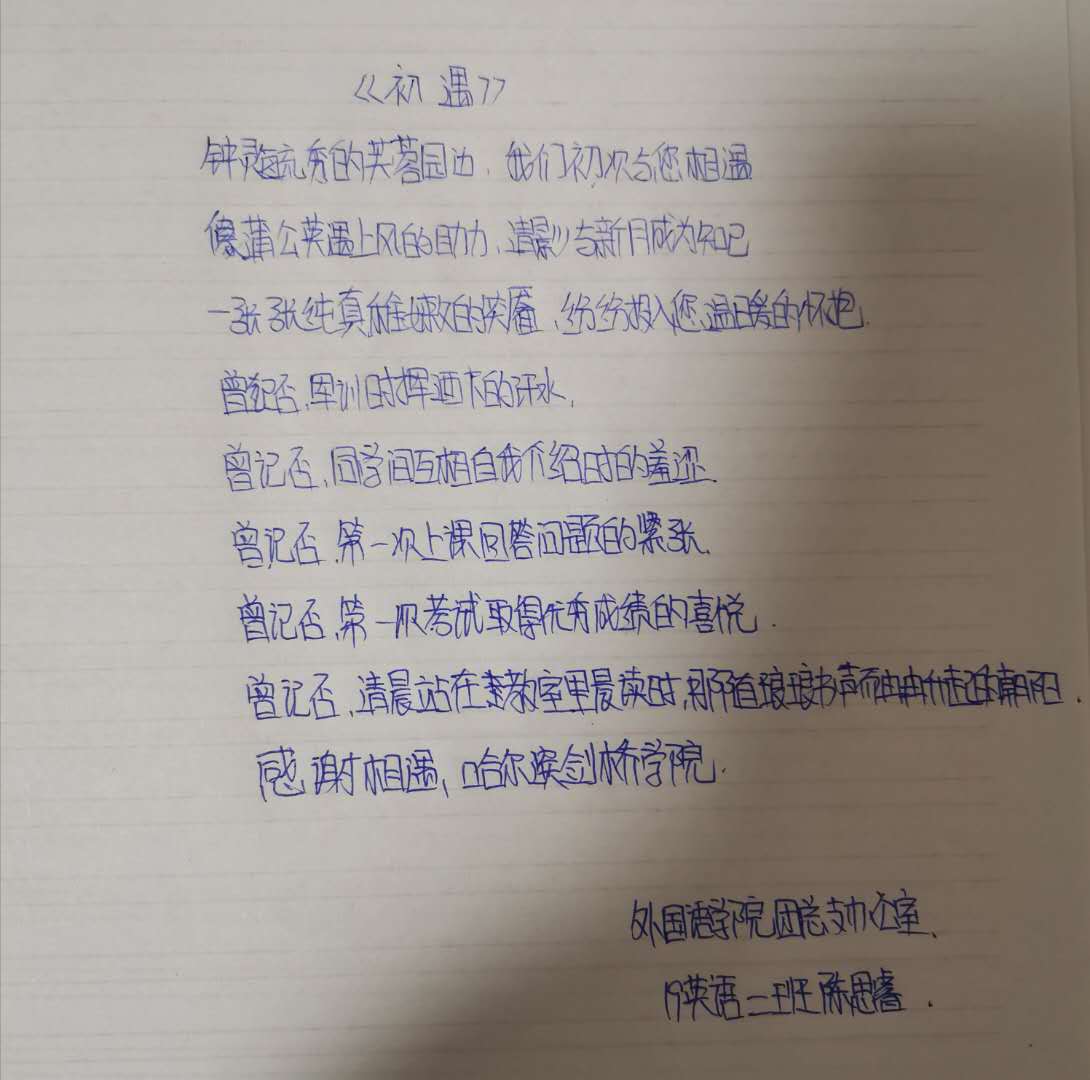 《初遇》
钟灵毓秀的芙蓉园边，我们初次与您相遇
像蒲公英遇上风的助力，清影与新月成为知己
一张张纯真稚嫩的笑靥，纷纷投入您温暖的怀抱.
曾记否，军训时挥洒下的汗水，
曾记否，同学间互相自我介绍时的羞涩.
曾记否，第一次上课回答问题的紧张.
曾记否，第一次考试取得优秀成绩的喜悦.
曾记否，清晨站在教室里晨读时，那随琅琅书声而冉冉升起的朝阳.
感谢相遇，哈尔滨剑桥学院.
外国语学院团总支办公室.
19英语二班陈思睿.